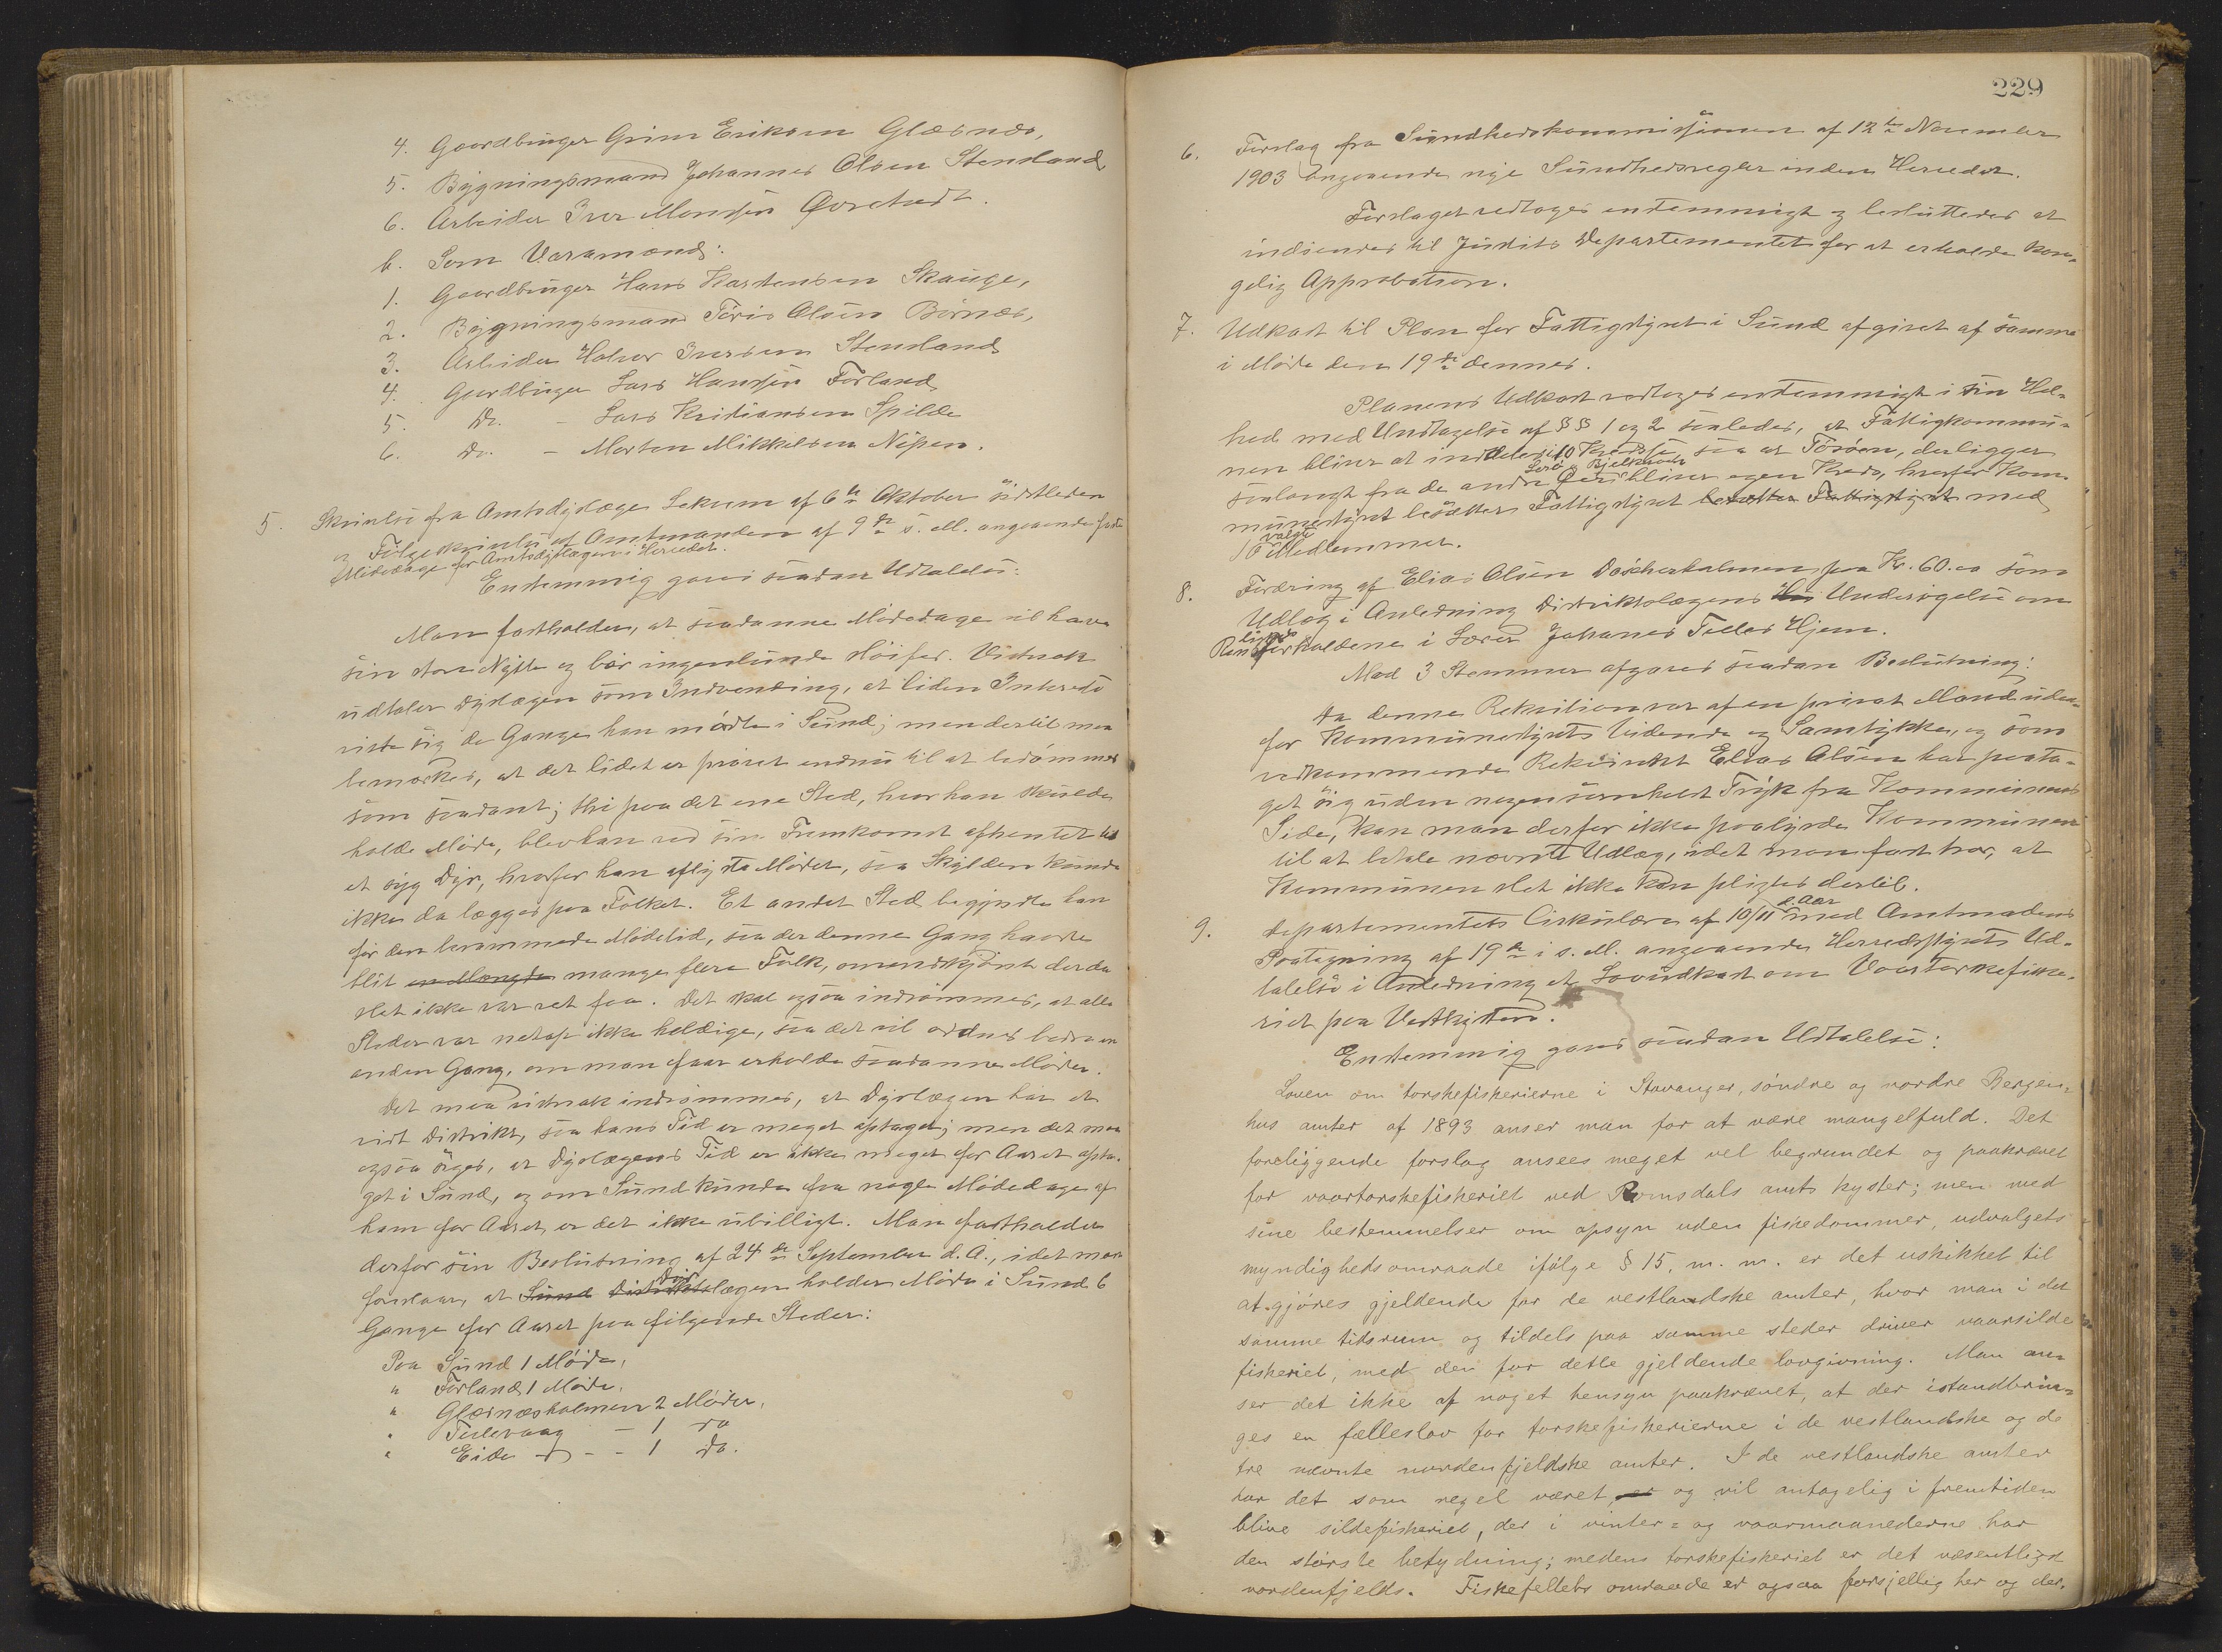 4. Gaardbruger Grim Eriksen Glæsnæs,
5. Bygningsmand Johannes Olsen Stensland
6. Arbeider Iver Monssen Qvrstedt.
b. Som Varamænd:
1. Gaardbruger Hans Karstensen Skauge,
2. Bygningsmand Tøris Olsen Børnæs,
3. Arbeider Halvor Iversen Stensland
4. Gaardbruger Lars Hanssen Førland
5. Do. - Lars Kristiansen Spilde
6. Do. - Morten Mikkelsen Nipen.
5. Skrivelse fra Amtsdyrlæge Løkum af 6te Oktober sidstleden
og Følgeskrivelse af Amtmanden af 9de s. M. angaaende faste
Mødedage for Amtsdyrlægen i Herredet.
Enstemmig gaves saadan Udtalelse:
Man fastholder, at saadanne Mødedage vil have
sin store Nytte og bør ingenlunde sløifes. Vistnok
udtaler Dyrlægen som Indvending, at liden Interesse
viste sig de Gange han mødte i Sund; men dertil maa
bemærkes, at det lidet er prøvet endnu til at bedømmes
som saadant; thi paa det ene Sted, hvor han skulde
holde Møde, blev han ved sin Fremkomst afhentet til
et syg Dyr, hvorfor han aflyste Mødet, saa Skylden kunde
ikke da lægges paa Folket. Et andet Sted begyndte han
før den berammede Mødetid, saa der denne Gang havde
blit en Mængde mange flere Folk, omendskjønt der da
slet ikke var ret faa. Det skal ogsaa indrømmes, at alle
Steder var netop ikke heldige, saa det vil ordnes bedre en
anden Gang, om man faar erholde saadanne Møder.
Det maa vistnok indrømmes, at Dyrlægen har et
vidt Distrikt, saa hans Tid er meget optaget; men det maa
ogsaa siges, at Dyrlægens Tid er ikke meget for Aaret opta-
get i Sund, og om Sund kunde faa nogle Mødedage af
ham for Aaret, er det ikke ubilligt. Man fastholder
derfor sin Beslutning af 24de September d. A., idet man
foreslaar, at Sund Distriktslægen Dyr holder Møde i Sund 6
Gange for Aaret paa følgende Steder:
Paa Sund 1 Møde,
" Førland 1 Møde,
" Glæsnæsholmen 2 Møder,
" Tælevaag - 1 do
" Eide - - 1 do.
229
6. Forslag fra Sundhedskommissionen af 12te November
1903 angaaende nye Sundhedsregler inden Herredet.
Forslaget vedtoges enstemmigt og besluttedes at
indsendes til Justits Departementet for at erholde kon-
gelig Approbation.
7. Udkast til Plan for Fattigstyret i Sund afgivet af samme
i Møde den 19de dennes.
Planens Udkast vedtoges enstemmigt i sin Hel-
hed med Undtagelse af §§ 1 og 2 saaledes, at Fattigkommu-
nen bliver at inddele i 10 Kredse, saa at Tosøen, der ligger
saalangt fra de andre Øer Lerø og Bjelkarøen bliver egen Kreds, hvorfor Kom-
munestyret besætter Fattigstyret besætter Fattigstyret med
10 valgte Medlemmer.
8. Fordring af Elias Olsen Døscherholmen paa Kr. 60.00 som
Udlæg i Anledning Distriktslægens Undersøgelse om
Renslighedsforholdene i Lærer Johanes Telles Hjem.
Med 3 Stemmer afgaves saadan Beslutning:
Da denne Rekvisition var af en privat Mand uden-
for Kommunestyrets Vidende og Samtykke, og som
vedkommende Rekvirent Elias Olsen har paata-
get sig uden nogensomhelst Tryk fra Kommunens
Side, kan man derfor ikke paabyrde Kommunen
til at betale nævnte Udlæg, idet man fastslaar, at
Kommunen slet ikke kan pligtes dertil.
9. Departementets Cirkulære af 10/11 d. Aar med Amtmandens
Paategning af 19de i s. M. angaaende Herredsstyrets Ud-
talelse i Anledning et Lovudkast om Vaartorskefiske-
riet paa Vestkysten.
Enstemmig gaves saadan Udtalelse:
Loven om torskefiskerierne i Stavanger, søndre og nordre Bergen-
hus amter af 1893 anser man for at være mangelfuld. Det
foreliggende forslag ansees meget vel begrundet og paakrævet
for vaartorskefiskeriet ved Romsdals amts kyster; men med
sine bestemmelser om opsyn uden fiskedommer, udvalgets
myndighedsomraade ifølge § 15, m. m. er det uskikket til
at gjøres gjeldende for de vestlandske amter, hvor man i det
samme tidsrum og tildels paa samme steder driver vaarsilde-
fiskeriet, med den for dette gjeldende lovgivning. Man an-
ser det ikke af noget hensyn paakrævet, at der istandbrin-
ges en fælleslov for torskefiskerierne i de vestlandske og de
tre nævnte nordenfjeldske amter. I de vestlandske amter
har det som regel været, er og vil antagelig i fremtiden
blive sildefiskeriet, der i vinter- og vaarmaanederne har
den største betydning; medens torskefiskeriet er det væsentligst
nordenfjelds. Fiskefeltets omraade er ogsaa forsjellig her og der,